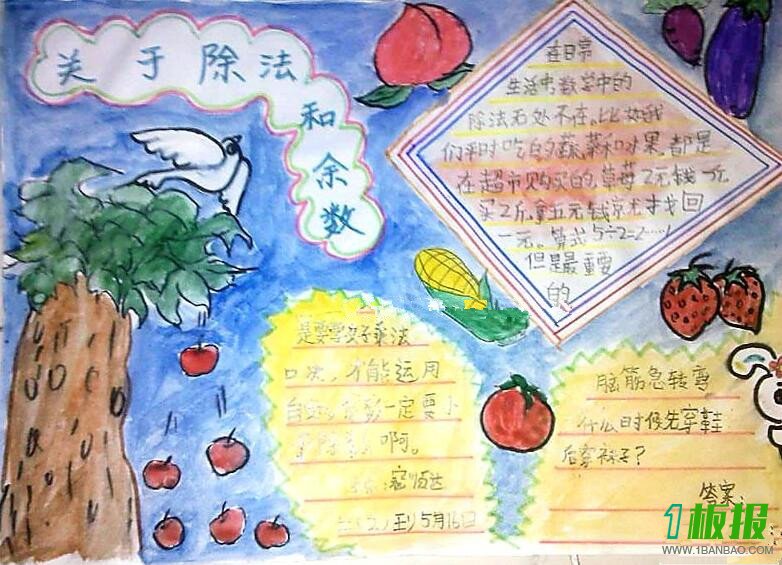 关于除法
和
余
数
在日常
生活中数学中的
除法无处不在,比如我
们平时吃的蔬菜和水果,都是
在超市购买的,草莓2元钱一斤
买2斤,拿五元钱
一元。算式5÷2=2……1
但是最重要
的
是要学好乘法
口决,才能运用
一定要
啊。
5月16日
脑筋急转弯
什么时候先穿鞋
后穿袜子?
答案:
1板报
WWW.1BANBAO.COM